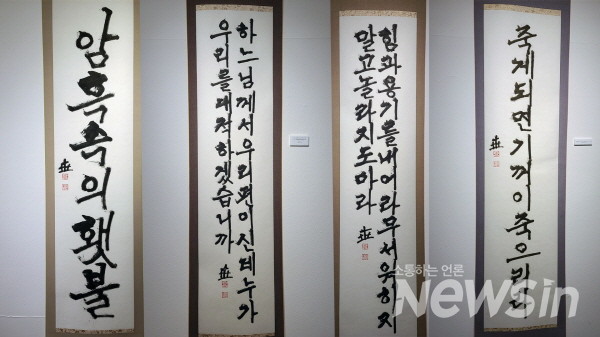 암흑속의횃불
하느님께서우리편이신데누가
우리를대적하겠습니까
힘과용기를내어라무서워하지
말고놀라지도마라
죽게되면기꺼이죽으리라
소통하는 언론
Newsin